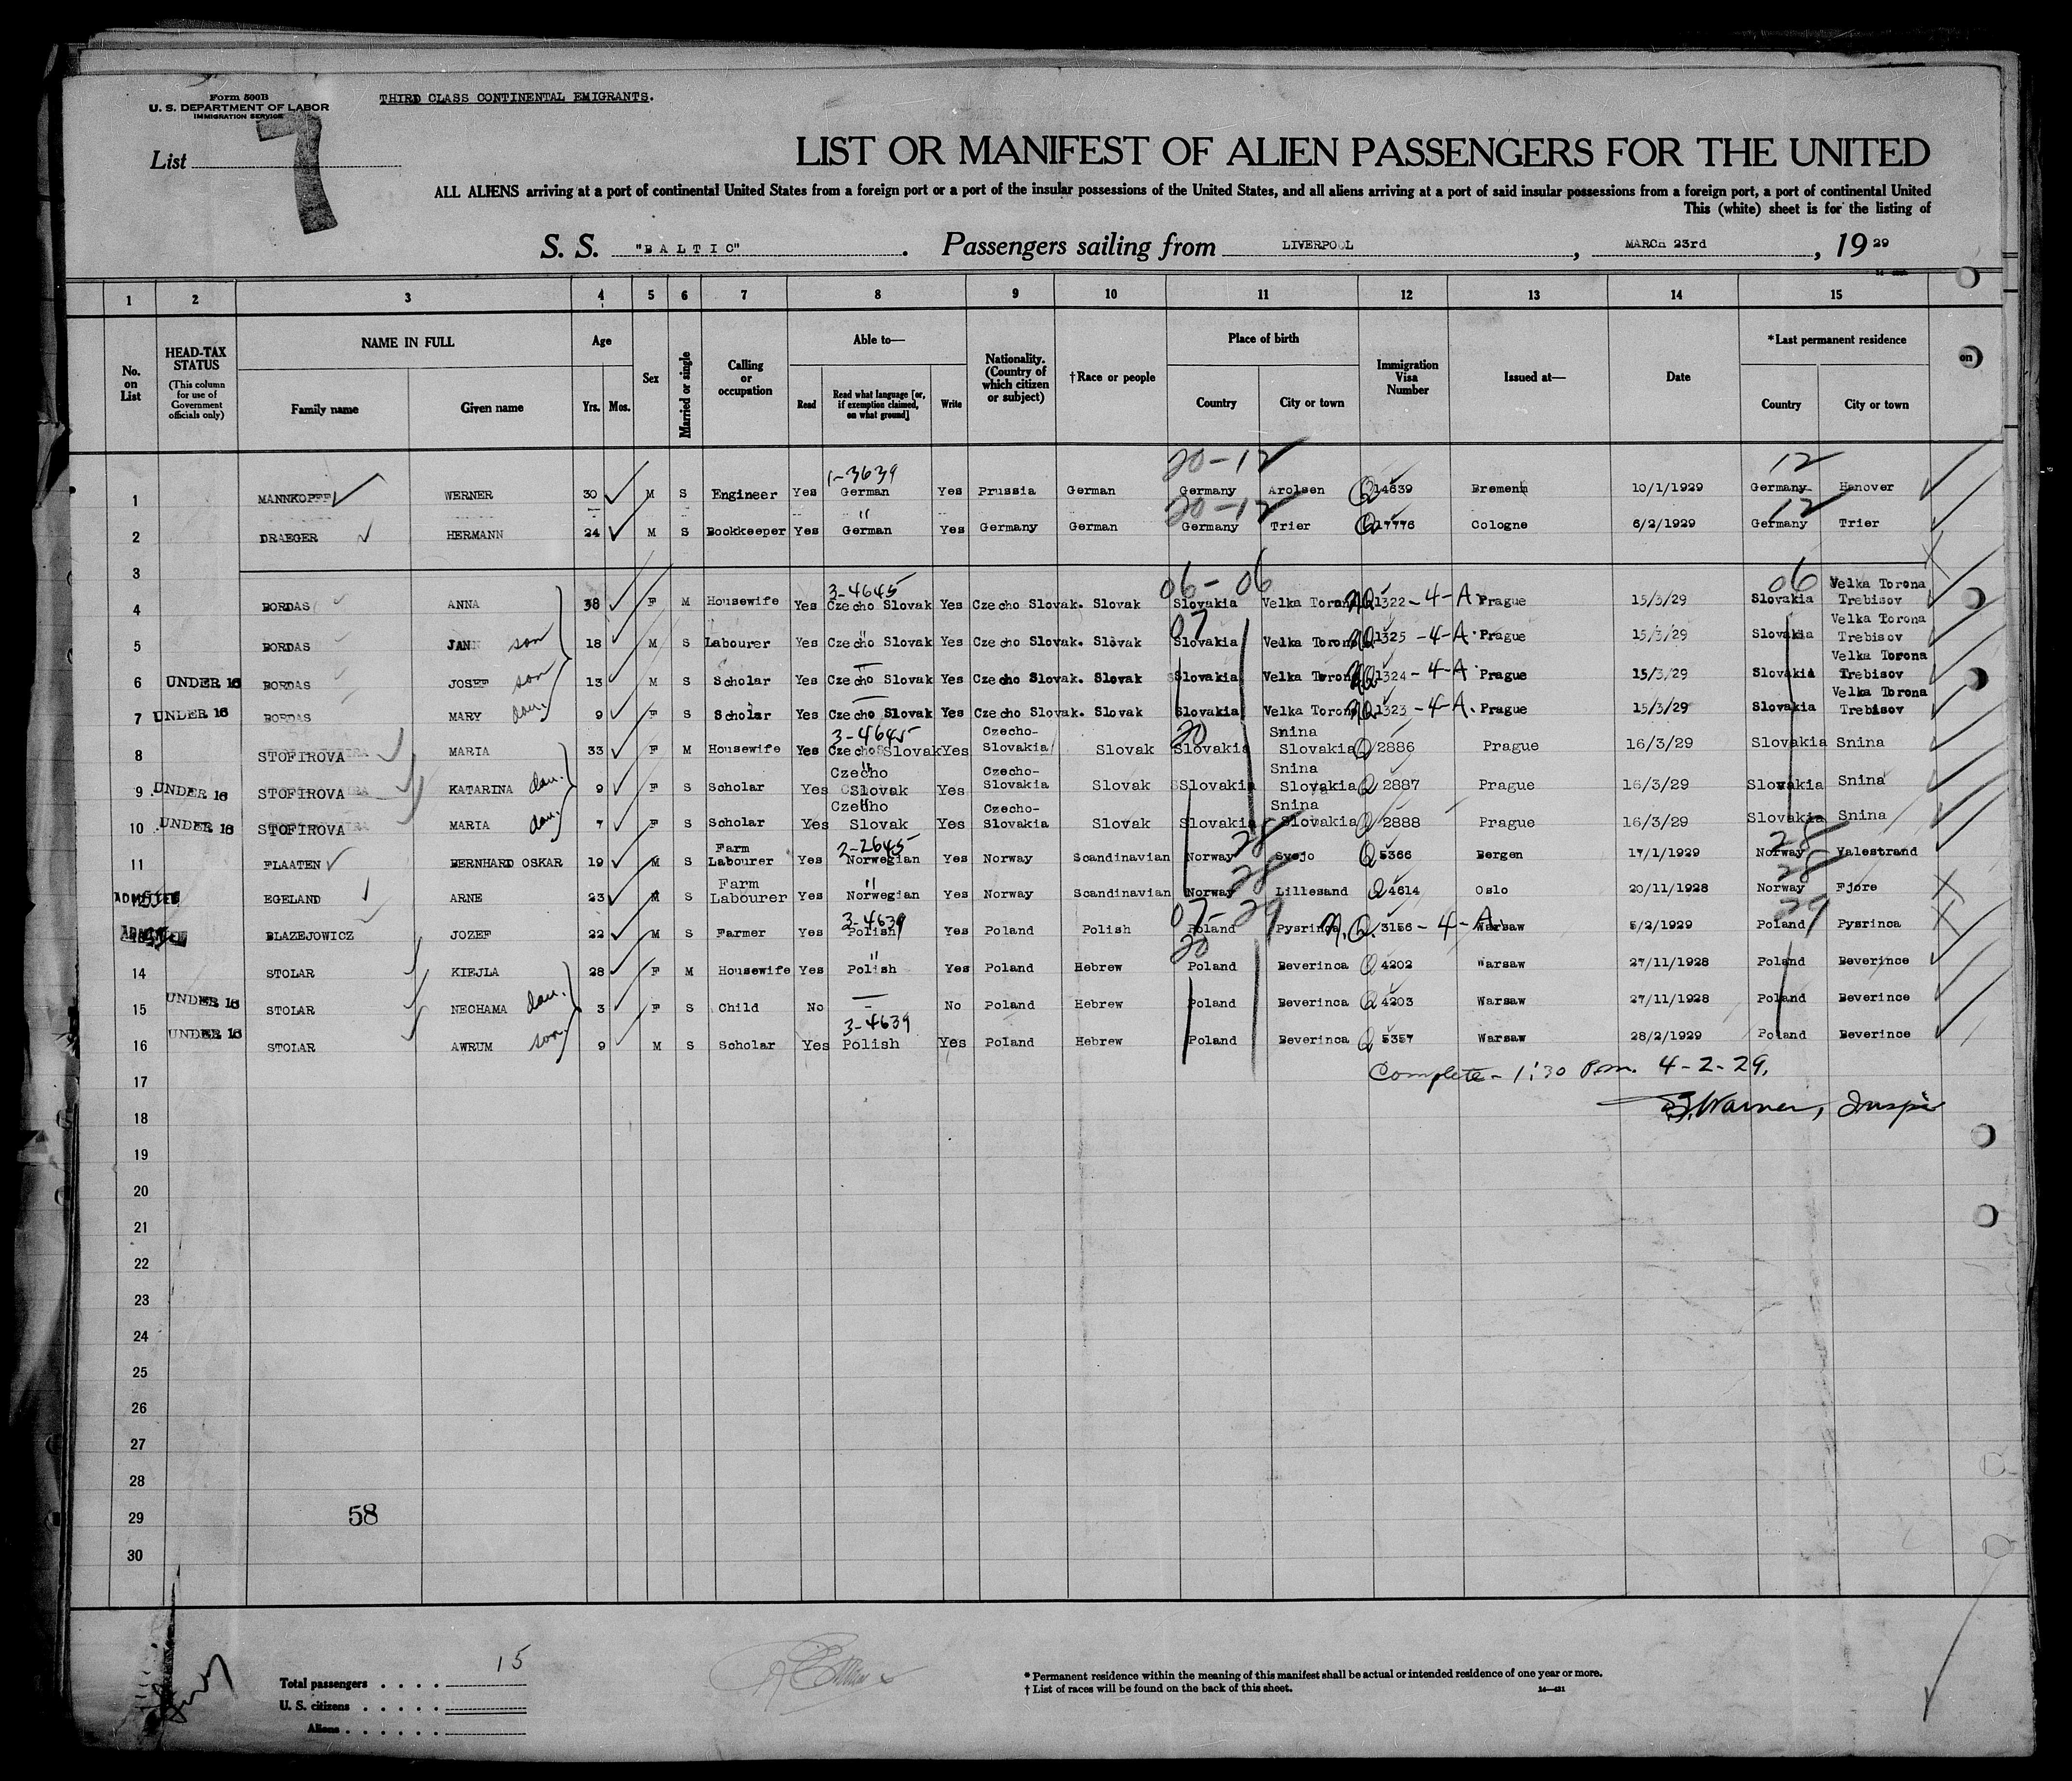 Form 500B
U. S. DEPARTMENT OF LABOR
IMMIGRATION SERVICE
THIRD CLASS CONTINENTAL EMIGRANTS.
List 7
LIST OR MANIFEST OF ALIEN PASSENGERS FOR THE UNITED
ALL ALIENS arriving at a port of continental United States from a foreign port or a port of the insular possessions of the United States, and all aliens arriving at a port of said insular possessions from a foreign port, a port of continental United
This (white) sheet is for the listing of
S. S. "BALTIC". Passengers sailing from LIVERPOOL, MARCH 23rd, 1929
1 2 3 4 5 6 7 8 9 10 11 12 13 14 15
No. on List
HEAD-TAX STATUS (This column for use of Government officials only)
NAME IN FULL
Family name Given name
Age
Yrs. Mos.
Sex
Married or single
Calling or occupation
Able to—
Read Read what language [or, if exemption claimed, on what ground] Write
Nationality. (Country of which citizen or subject)
†Race or people
Place of birth
Country City or town
Immigration Visa Number
Issued at—
Date
*Last permanent residence
Country City or town
on
1-3639 20-12 12
1 MANNKOPFF WERNER 30 M S Engineer Yes German Yes Prussia German Germany Arolsen Q 14639 Bremen 10/1/1929 Germany Hanover
" 20-12 12
2 DRAEGER HERMANN 24 M S Bookkeeper Yes German Yes Germany German Germany Trier Q 17776 Cologne 6/2/1929 Germany Trier
3
3-4645 06-06 06
4 BORDAS ANNA 38 F M Housewife Yes Czecho Slovak Yes Czecho Slovak. Slovak Slovakia Velka Torona NQ 1322-4-A Prague 15/3/29 Slovakia Velka Torona Trebisov
07
5 BORDAS JAN son 18 M S Labourer Yes Czecho Slovak Yes Czecho Slovak. Slovak Slovakia Velka Torona NQ 1325-4-A Prague 15/3/29 Slovakia Velka Torona Trebisov
6 UNDER 16 BORDAS JOSEF son 13 M S Scholar Yes Czecho Slovak Yes Czecho Slovak. Slovak Slovakia Velka Torona NQ 1324-4-A Prague 15/3/29 Slovakia Velka Torona Trebisov
7 UNDER 16 BORDAS MARY dau. 9 F S Scholar Yes Czecho Slovak Yes Czecho Slovak. Slovak Slovakia Velka Torona NQ 1323-4-A. Prague 15/3/29 Slovakia Velka Torona Trebisov
3-4645 20
8 STOFIROVA MARIA 33 F M Housewife Yes Czecho Slovak Yes Czecho-Slovakia Slovak Slovakia Snina Slovakia Q 2886 Prague 16/3/29 Slovakia Snina
9 UNDER 16 STOFIROVA KATARINA dau. 9 F S Scholar Yes Czecho Slovak Yes Czecho-Slovakia Slovak Slovakia Snina Slovakia Q 2887 Prague 16/3/29 Slovakia Snina
10 UNDER 16 STOFIROVA MARIA dau. 7 F S Scholar Yes Czecho Slovak Yes Czecho-Slovakia Slovak Slovakia Snina Slovakia Q 2888 Prague 16/3/29 Slovakia Snina
2-2645 28 28
11 FLAATEN BERNHARD OSKAR 19 M S Farm Labourer Yes Norwegian Yes Norway Scandinavian Norway Svejo Q 5366 Bergen 17/1/1929 Norway Valestrand
" 28 28
ADMITTED EGELAND ARNE 23 M S Farm Labourer Yes Norwegian Yes Norway Scandinavian Norway Lillesand Q 4614 Oslo 20/11/1928 Norway Fjore
3-4639 07-29 29
ADMITTED BLAZEJOWICZ JOZEF 22 M S Farmer Yes Polish Yes Poland Polish Poland Pysrinca N.Q. 3156-4-A Warsaw 5/2/1929 Poland Pysrinca
" 20
14 STOLAR KIEJLA 28 F M Housewife Yes Polish Yes Poland Hebrew Poland Beverinca Q 4202 Warsaw 27/11/1928 Poland Beverince
15 UNDER 16 STOLAR NECHAMA dau. 3 F S Child No - No Poland Hebrew Poland Beverinca Q 4203 Warsaw 27/11/1928 Poland Beverince
3-4639
16 UNDER 16 STOLAR AWRUM son. 9 M S Scholar Yes Polish Yes Poland Hebrew Poland Beverinca Q 5357 Warsaw 28/2/1929 Poland Beverince
17 Complete - 1:30 P.m. 4-2-29.
18 Warner, Insp
19
20
21
22
23
24
25
26
27
28
29 58
30
Total passengers . . . . 15
U. S. citizens . . . . .
Aliens . . . . . .
* Permanent residence within the meaning of this manifest shall be actual or intended residence of one year or more.
† List of races will be found on the back of this sheet.
14—421